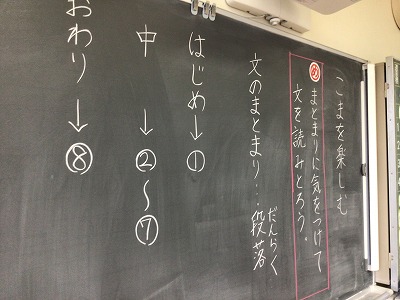 こまを楽しむ
め まとまりに気をつけて
文を読みとろう。
文のまとまり・・・段落
だんらく
はじめ→①
中→②～⑦
おわり→⑧